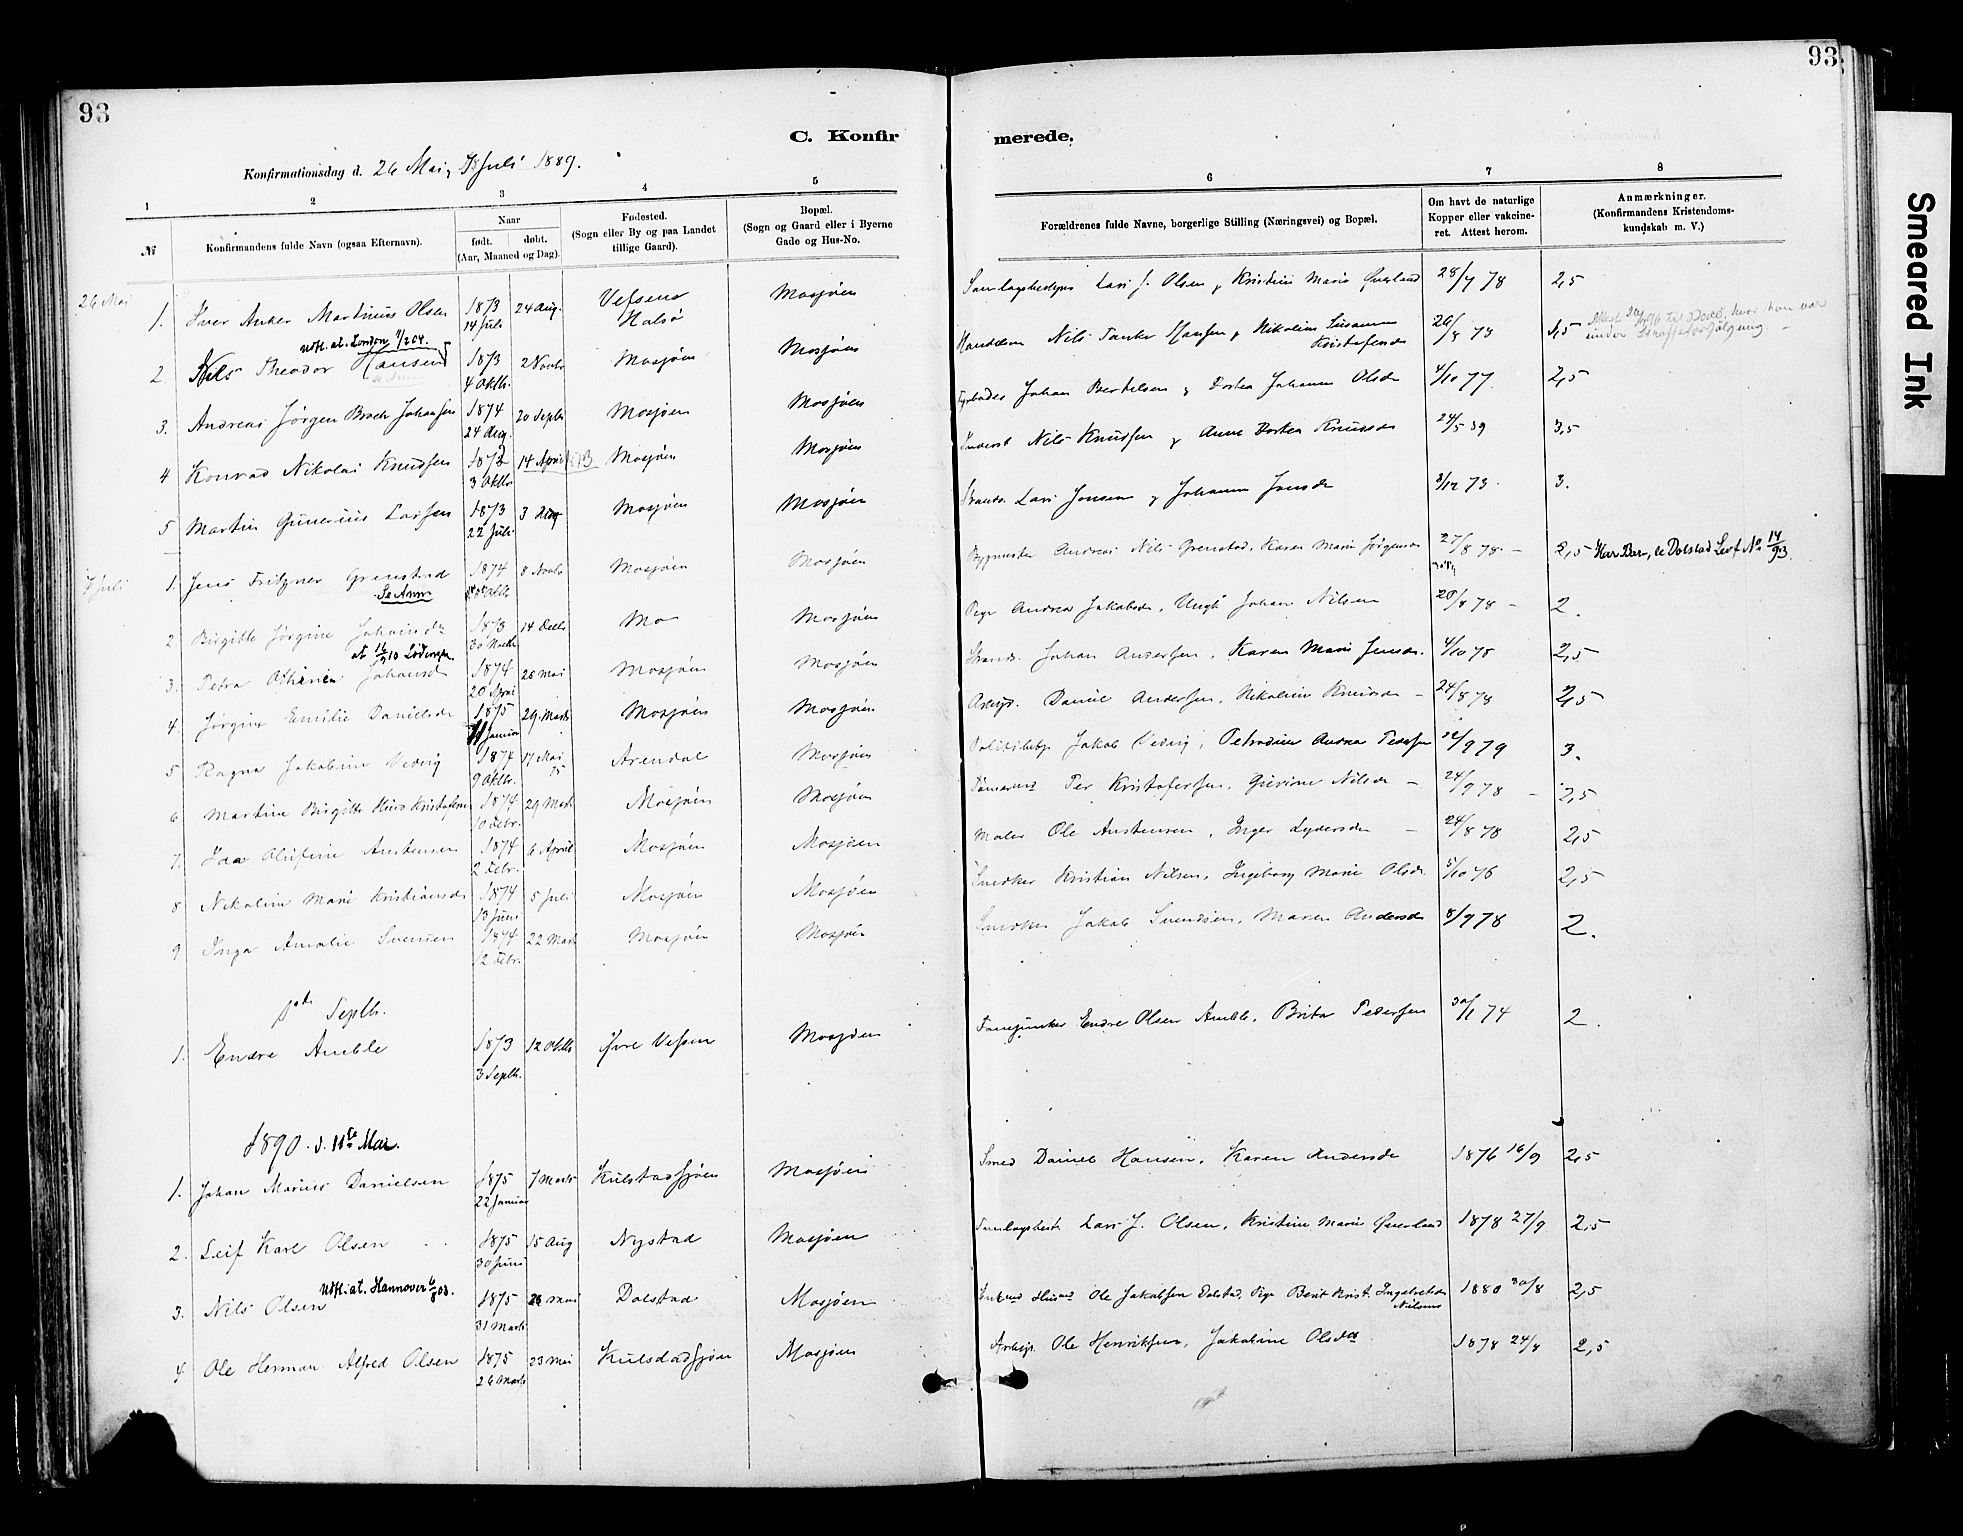 93
93
C. Konfirmerede.
Smeared Ink
Konfirmationsdag d. 26 Mai, 7 Juli 1889.
1 2 3 4 5 6 7 8
№
Konfirmandens fulde Navn (ogsaa Efternavn).
Naar
født. døbt.
(Aar, Maaned og Dag).
Fødested.
(Sogn eller By og paa Landet
tillige Gaard).
Bopæl.
(Sogn og Gaard eller i Byerne
Gade og Hus-No.
Forældrenes fulde Navne, borgerlige Stilling (Næringsvei) og Bopæl.
Om havt de naturlige
Kopper eller vakcine-
ret. Attest herom.
Anmærkninger.
(Konfirmandens Kristendoms-
kundskab m. V.)
26 Mai
1. Iver Anker Martinius Olsen 1873 14 Juli 24 Aug. Vefsens Halsø Mosjøen Lars J. Olsen, Kristine Marie Øverland 28/9 78 2,5
Udfl. at. London
2 Nils Theodor Hansen 1873 4 Oktb. 2 Novbr Mosjøen Mosjøen Nils Tanke Hansen, Nikoline Susanna Kristofersdr 26/8 78 1,5
3. Andreas Jørgen Broch Johansen 1874 24 Aug. 20 Septb Mosjøen Mosjøen Johan Bertelsen, Dortea Johanna Olsdr 4/10 77. 2,5
4 Konrad Nikolai Knudsen 1872 3 Oktbr 14 April 73 Mosjøen Mosjøen Nils Knudsen, Anne Dortea Knudsdr 24/5 89 3,5
5 Martin Gunerius Larsen 1873 22 Juli 3 Aug Mosjøen Mosjøen Lars Jonsen, Johanna Jonsdr 8/12 73. 3.
7 Juli
1. Jens Fritzner Grenstad 1874 8 Novbr Mosjøen Mosjøen Andreas Nils Grenstad, Karen Marie Jørgensdr 27/8 78 – 2,5 Har Barn, se Dolstad Levf. No 14/93.
Se Anm
2 Birgitte Jørgine Johansdr 1873 14 Decbr Mo Mosjøen Pige Andrea Jakobsdr, Ungk Johan Nilsen 20/8 78 – 2.
3. Petra Johansdr 1874 20 April 25 Mai Mosjøen Mosjøen Johan Andersen, Karen Marie Jensdr. 4/10 78 2,5
4. Jørgine Emilie Danielsdr 1875 11 Januar 29 Marts Mosjøen Mosjøen Arbejd. Daniel Andersen, Nikoline Knudsdr – 24/8 78 2,5
5 Ragna Jakobine Vedvig 1874 9 Oktbr. 17 Mai 75 Arendal Mosjøen Politibetj. Jakob Vedvig, Petrodine Andrea Pedersen 12/9 79 3.
6 Martine Birgitte Kristofersdr 1874 10 Febr. 29 Marts Mosjøen Mosjøen Tømermd Per Kristofersen, Gurine Nilsdr – 24/9 78 – 2,5
7. Ida Olufine Austensen 1874 2 Febr. 6 April Mosjøen Mosjøen Maler Ole Austensen, Inger Lydersdr – 24/8 78 2,5
8 Nikoline Marie Kristiansdr 1874 13 Juni 5 Juli Mosjøen Mosjøen Snedker Kristian Nilsen, Ingeborg Marie Olsdr 5/10 76 2,5
9 Inga Amalie Svensen 1874 12 Febr. 22 Marts Mosjøen Mosjøen Snedker Jakob Svendsen, Maren Andersdr 8/9 78 2.
1ste Septb.
1. Endre Amble 1873 3 Septb. 12 Oktb Øvre Vefsen Mosjøen Fanejunker Endre Olsen Amble, Brita Pedersen 30/1 74 2.
1890. d. 11te Mai.
1. Johan Marius Danielsen 1875 22 Januar 7 Marts Kulstadsjøen Mosjøen Smed Daniel Hansen, Karen Andersdr 1876 16/9 2,5
2. Leif Karl Olsen 1875 30 Juni 15 Aug Nystad Mosjøen Samlagsbest. Lars J. Olsen, Kristine Marie Øverland 1878 27/9 2,5
Udfl. at. Hannover 6/8 03.
3. Nils Olsen 1875 31 Marts 28 Mai Dolstad Mosjøen Ole Jakobsen Dolstad, Pige Berit Krist. Ingebrigtsdr Nilsens 1880 30/8 2,5
4 Ole Herman Alfred Olsen 1875 26 Marts 23 Mai Kulsdadsjøen Mosjøen Arbejd. Ole Henriksen, Jakobine Olsdtr 1878 24/8 2,5